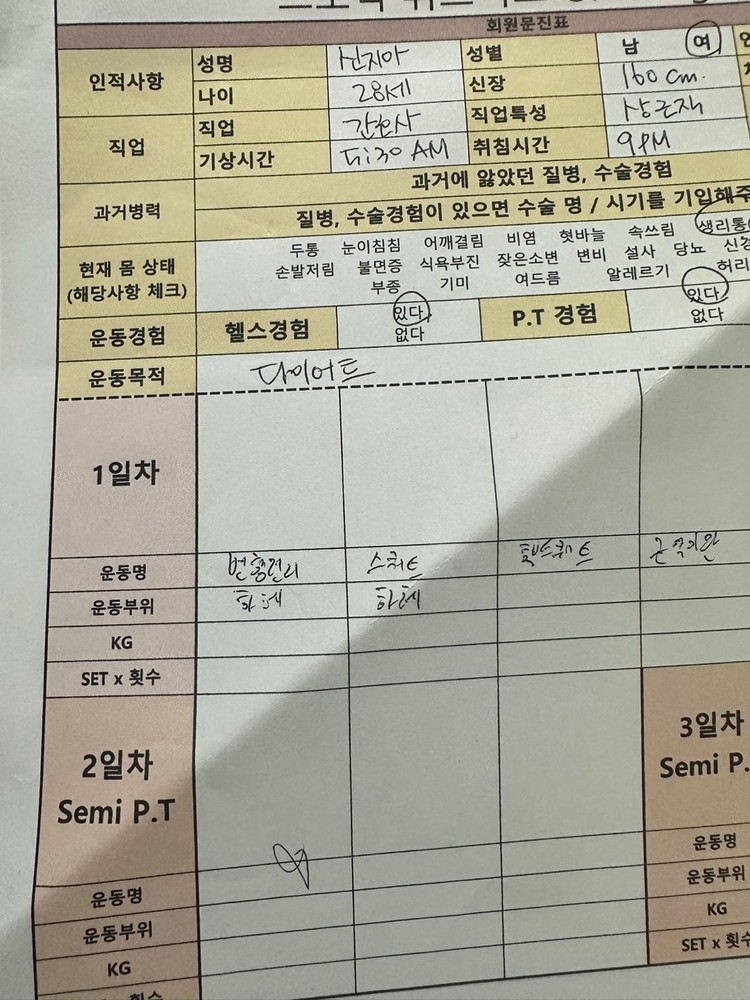 회원문진표
인적사항 성명 신지아 성별 남 여
나이 28세 신장 160 cm.
직업 직업 간호사 직업특성 상근재
기상시간 5:30 AM 취침시간 9PM
과거병력 과거에 앓았던 질병, 수술경험
질병, 수술경험이 있으면 수술 명 / 시기를 기입해주
현재 몸 상태 (해당사항 체크) 두통 눈이침침 어깨결림 비염 혓바늘 속쓰림 생리통
손발저림 불면증 식욕부진 잦은소변 변비 설사 당뇨
부종 기미 여드름 알레르기 허리
운동경험 헬스경험 있다 없다 P.T 경험 있다 없다
운동목적 다이어트
1일차
운동명 스쿼트
운동부위 하체 하체
KG
SET x 횟수
2일차 3일차
Semi P.T Semi P.
운동명 운동명
운동부위 운동부위
KG KG
SET x 횟수